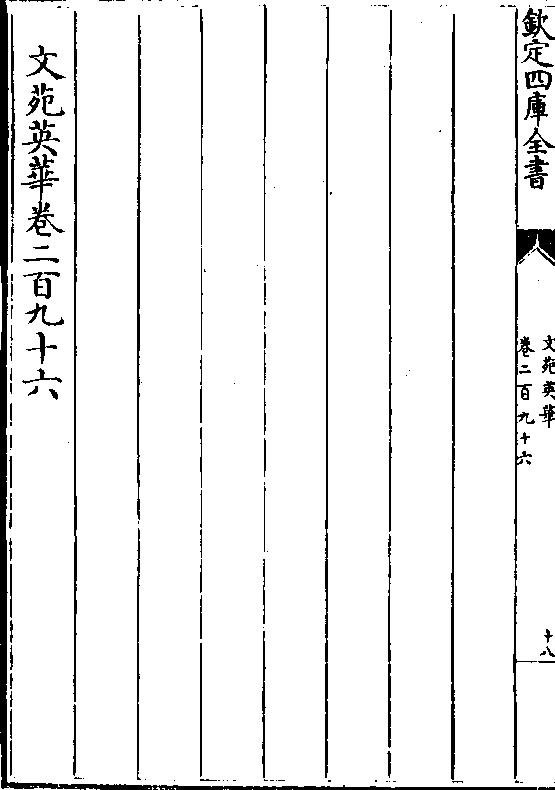 欽定四庫全書
文苑英華
卷二百九十六
十八
文苑英華卷二百九十六